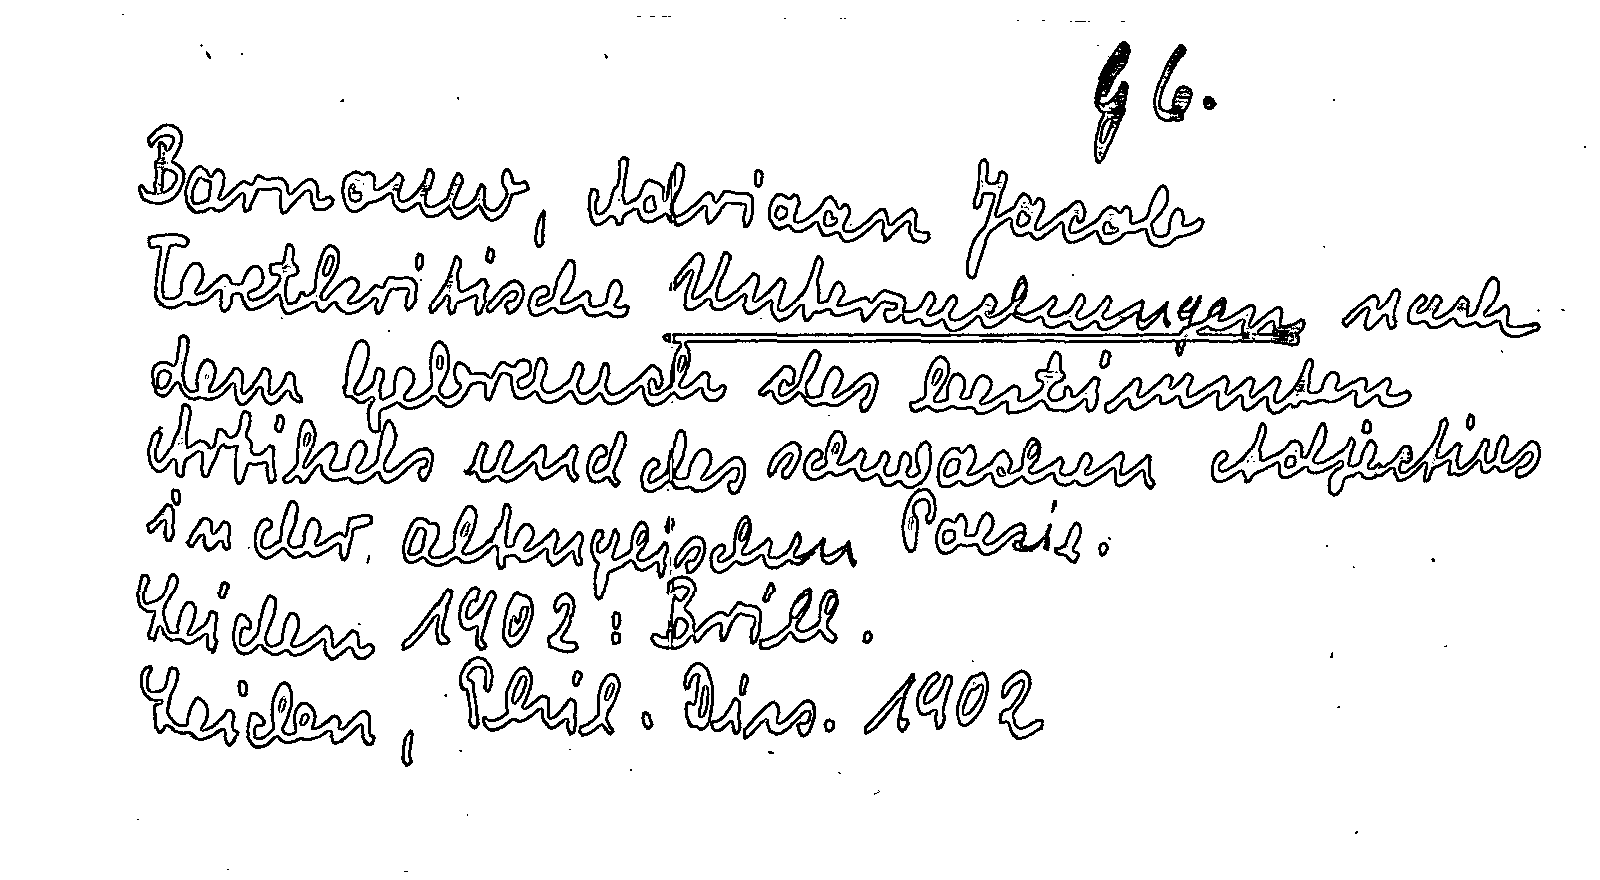 G 6.
Barnouw, Adriaan Jacob
Textkritische Untersuchungen nach
dem Gebrauch des bestimmten
Artikels und des schwachen Adjectivs
in der altenglischen Poesie.
Leiden 1902: Brill.
Leiden, Phil. Diss. 1902